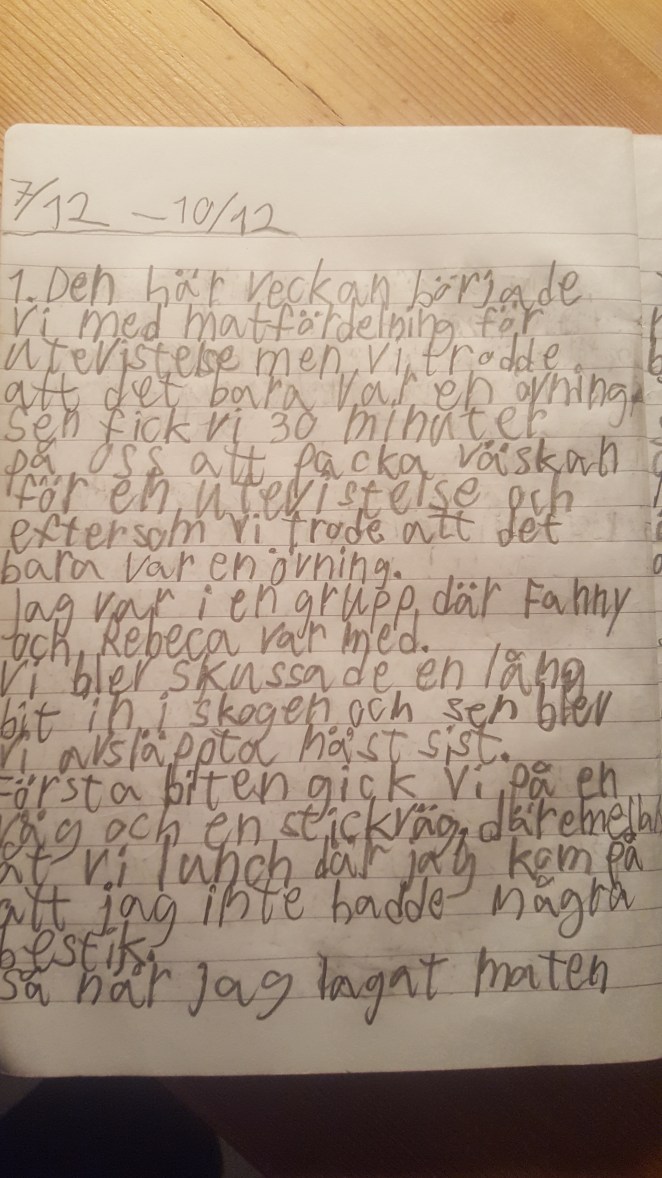 7/12 - 10/12
1. Den här veckan började
vi med matfördelning för
utevistelse men vi trodde
att det bara var en övning,
sen fick vi 30 minuter
på oss att packa väskan
för en utevistelse och
eftersom vi trode att det
bara var en övning.
Jag var i en grupp där Fanny
och Rebeca var med.
Vi blev skussade en lång
bit in i skogen och sen blev
vi avsläppta näst sist.
Första biten gick vi på en
väg och en stickväg,
åt vi lunch där jag kom på
att jag inte hadde några
bestik.
så när jag lagat maten